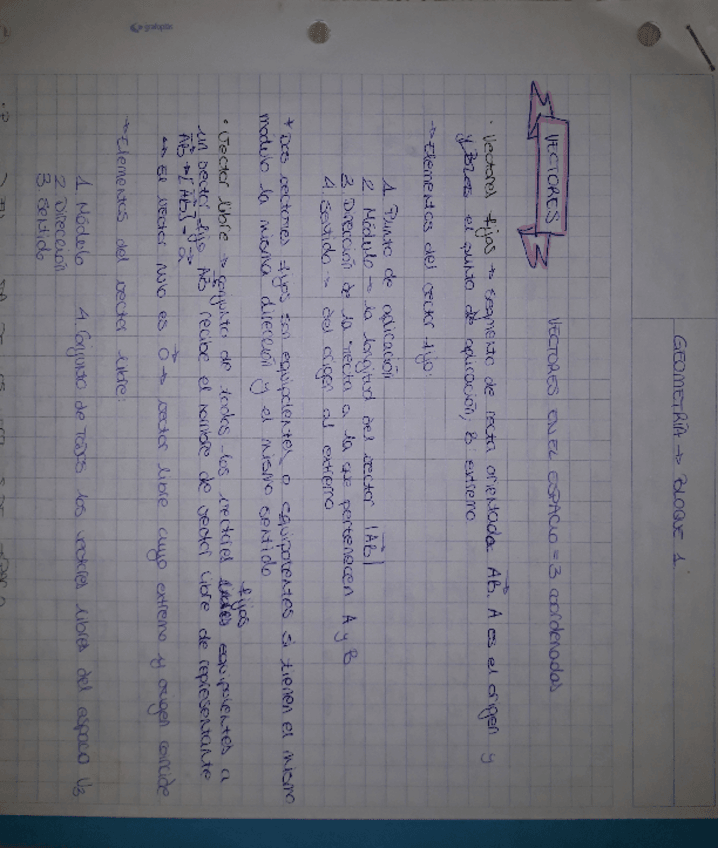 GEOMETRÍA → BLOQUE 1.
VECTORES
VECTORES EN EL ESPACIO = 3 cordenadas
· Vectores fijos → segmento de recta orientada: AB. A es el origen y
el punto de aplicación; B extremo
→ Elementos del vector fijo:
1. Punto de aplicación
2. Módulo → la longitud del vector |AB|
3. Dirección de la recta a la que pertenecen A y B
4. Sentido → del origen al extremo
* Dos vectores fijos son equipolentes o si tienen el mismo
módulo la misma dirección y el mismo sentido
· Vector libre → conjunto de todos los vectores fijos equipolentes a
un vector fijo AB recibe el nombre de vector libre de representante
AB → [AB] = a
↔ El vector nulo es 0 → vector libre cuyo extremo y origen coincide
→ Elementos del vector libre:
1. Módulo 4. Conjunto de todos los vectores libres del espacio V3
2. Dirección
3. Sentido